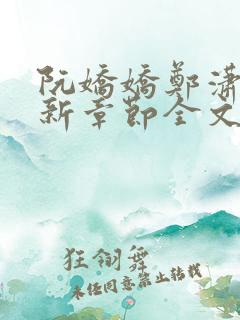 阮嬌嬌鄭瀟
新章節全文
狂翎舞
未經同意禁止轉載